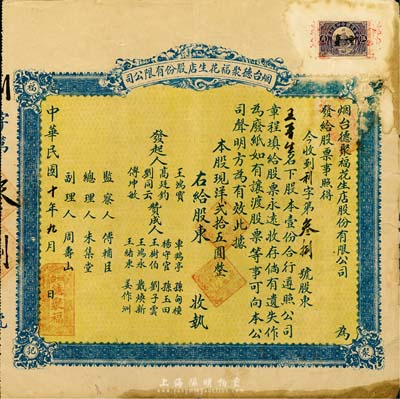 烟台德聚福花生店股份有限公司
福
烟台德聚福花生店股份有限公司 為
發給股票事照得
今收到利字第叁捌號股東
名下股本壹份合行遵照公司
章程填給股票永遠收存倘有遺失作
為廢紙如有讓渡股票等事可向本公
司聲明方為有效此據
本股現洋貳拾五圓整
右給股東 收執
發起人 王鴻賓 高廷鈞 劉同云 傅坤敏
贊成人 車鶴亭 楊守官 王樹伯 王鴻永 王緒東
孫甸種 孫玉田 劉子雲 戴煥新 姜作洲
監察人 傅補臣
總理人 朱集堂
副理人 周壽山
中華民國十年九月 日
聚
記
上海陽明拍賣